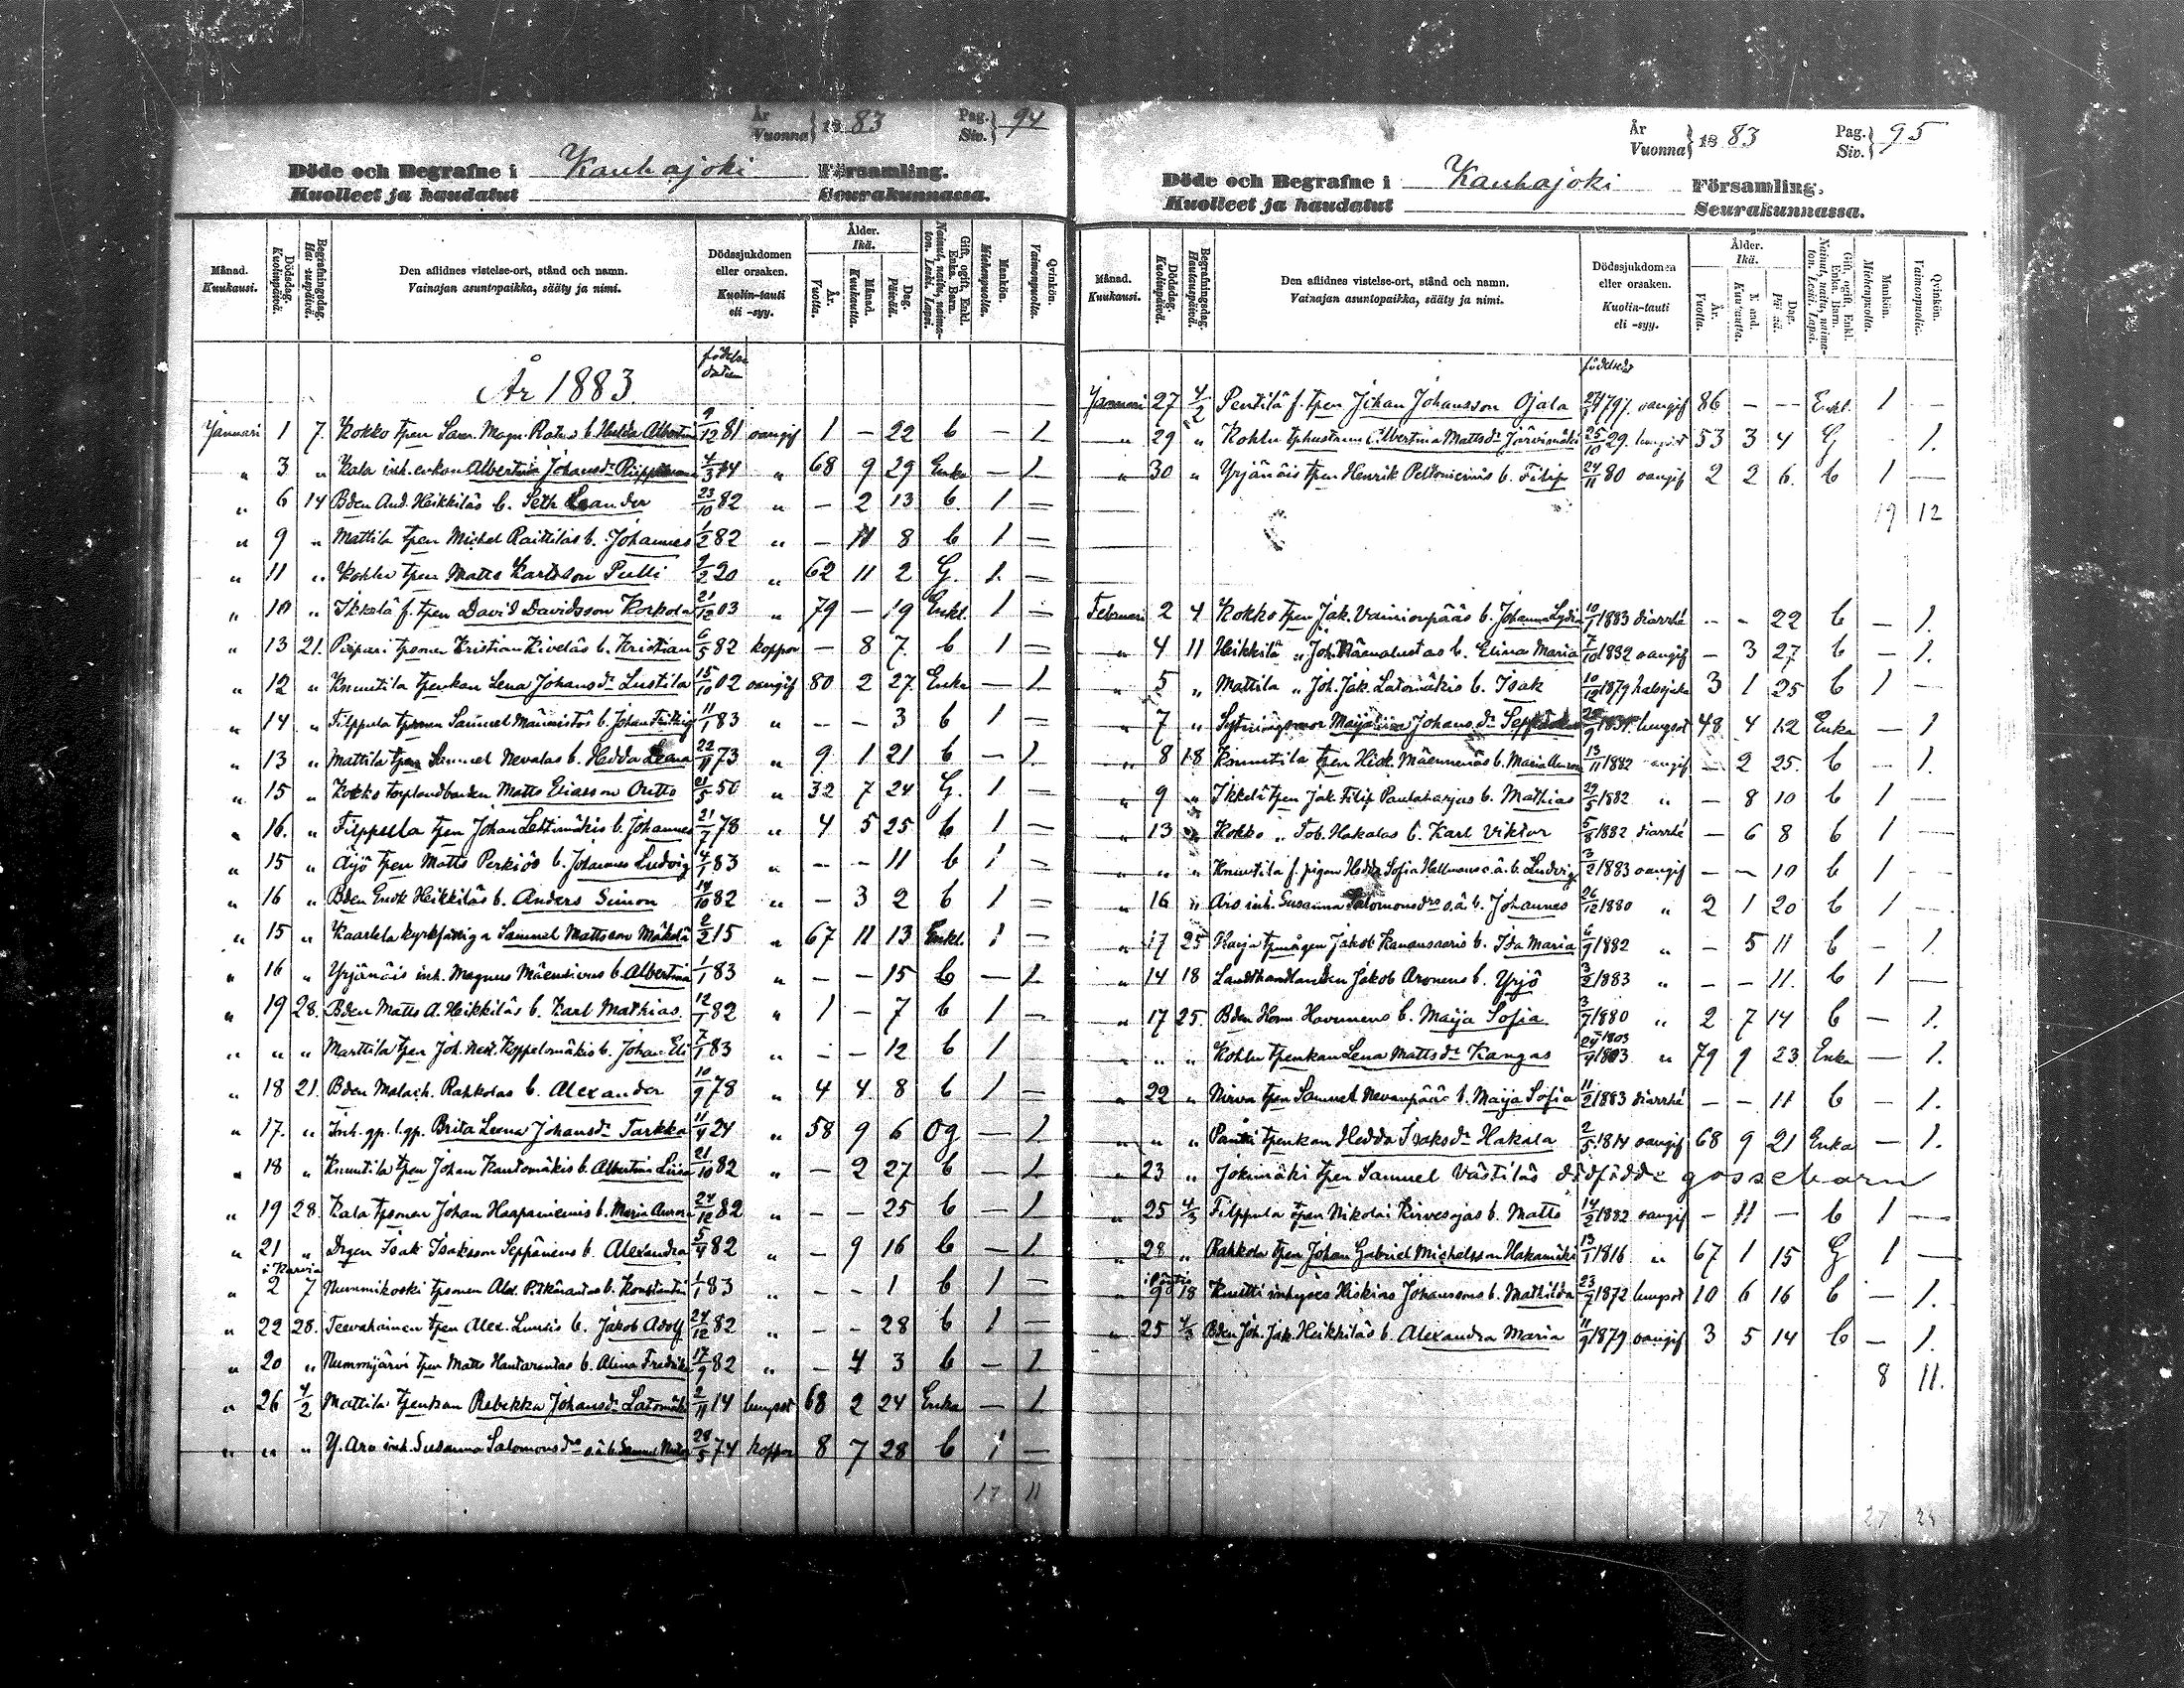 År
Vuonna } 1883 Pag. Siv. } 94
Döde och Begrafne i Kauhajoki Församling.
Kuolleet ja haudatut Seurakunnassa.
Månad. Kuukausi. Dödsdag. Kuolinpäivä. Begrafningsdag. Hautauspäivä. Den aflidnes vistelse-ort, stånd och namn. Vainajan asuntopaikka, sääty ja nimi. Dödssjukdomen eller orsaken. Kuolin-tauti eli -syy. Ålder. Ikä. År. Vuotta. Månad. Kuukautta. Dag. Päivää. Gift, ogift, Enkl. Enka. Barn. Nainut, naitu, naimaton. Leski. Lapsi. Mankön. Miehenpuolia. Qvinkön. Vaimonpuolia.
År 1883. födelse datum
Januari 1 7. Kokko tpen Sam. Magn. b. Hulda Albertina 9/12 81 oangif 1 — 22 b — 1
" 3 " Kala inh. enkan Albertina Johansdr 4/3 14 " 68 9 29 Enka — 1
" 6 14 Bden And. Heikkiläs b. Seth Leander 23/10 82 " — 2 13 b. 1 —
" 9 " Mattila tpen Michel Raittilas b. Johannes 1/2 82 " — 11 8 b 1 —
" 11 " Kohlu tpen Matts Karlsson Pulli 9/2 20 " 62 11 2 G. 1. —
" 10 " Ikkelä f. tpen David Davidsson Korkola 21/12 03 " 79 — 19 Enkl. 1 —
" 13 21. Piipari tpsonen Kristian Kiveläs b. Kristian 6/5 82 koppor — 8 7. b 1 —
" 12 " Knuutila tpenkan Lena Johansdr Lustila 15/10 02 oangif 80 2 27 Enka — 1
" 14 " Filppula tpsonen Samuel Männistös b. Johan Fredrig 11/1 83 " — — 3 b 1 —
" 13 " Mattila tpen Samuel Nevalas b. Hedda Leana 22/11 73 " 9 1 21 b — 1.
" 15 " Kokko torplandbonden Matts Eliasson 21/5 50 " 32 7 24 G. 1 —
" 16. " Filppula tpen Johan Lehtimäkis b. Johannes 21/7 78 " 4 5 25 b 1 —
" 15 " Äijö tpen Matts Perkiös b. Johannes Ludvig 4/1 83 " — — 11 b 1 —
" 16 " Bden Enok Heikkiläs b. Anders Simon 14/10 82 " — 3 2 b 1 —
" 15 " Kaarlela kyrkfattiga Samuel Mattsson Mäkelä 2/2 15 " 67 11 13 Enkl. 1 —
" 16 " Yrjänäis inh. Magnus Mäensivus b. Albertina 1/1 83 " — — 15 b — 1
" 19 28. Bden Matts A. Heikkiläs b. Karl Mathias 12/1 82 " 1 — 7 b 1 —
" " " Marttila tpen Joh. Ned. Koppelomäkis b. Johan Eli 7/1 83 " — — 12 b 1 —
" 18 21. Bden Malach. Rahkolas b. Alexander 10/9 78 " 4 4 8 b 1 —
" 17. " Inh. gp. l. gp. Brita Leena Johansdr Tarkka 11/4 24 " 58 9 6 Og — 1
" 18 " Knuutila tpen Johan Kautomäkis b. Albertina Liisa 21/10 82 " — 2 27 b — 1
" 19 28. Kala tpsonen Johan Haapaniemis b. Maria Aurora 24/12 82 " — — 25 b — 1
" 21 " Drgen Isak Isaksson Seppänens b. Alexandra 5/4 82 " — 9 16 b — 1
i Karvia
" 2 7 Nummikoski tpsonen Alex. Pitkärantas b. Konstantin 1/1 83 " — — 1 b 1 —
" 22 28. Teevahainen tpen Alex. Luusis b. Jakob Adolf 24/12 82 " — — 28 b 1 —
" 20 " Nummijärvi tpen Matts Hautarantas b. Alina Fredrika 17/9 82 " — 4 3 b — 1
" 26 4/2 Mattila tpenkan Rebekka Johansdr Latomäki 2/11 14 lungsot 68 2 24 Enka — 1
" " " Y. Aro inh. Susanna Salomonsdrs o.ä. b. Samuel 28/5 74 koppor 8 7 28 b 1 —
17 11
År
Vuonna } 1883 Pag. Siv. } 95
Döde och Begrafne i Kauhajoki Församling.
Kuolleet ja haudatut Seurakunnassa.
Månad. Kuukausi. Dödsdag. Kuolinpäivä. Begrafningsdag. Hautauspäivä. Den aflidnes vistelse-ort, stånd och namn. Vainajan asuntopaikka, sääty ja nimi. Dödssjukdomen eller orsaken. Kuolin-tauti eli -syy. Ålder. Ikä. År. Vuotta. Månad. Kuukautta. Dag. Päivää. Gift, ogift, Enkl. Enka. Barn. Nainut, naitu, naimaton. Leski. Lapsi. Mankön. Miehenpuolia. Qvinkön. Vaimonpuolia.
Januari 27 4/2 Pentilä f. tpen Johan Johansson Ojala 1797. oangif 86 — — Enkl. 1 —
" 29 " Kohlu tphustrun Albertina Mattsdr Järvimäki 25/10 29. lungsot 53 3 4 G — 1.
" 30 " Yrjänäis tpen Henrik Peltoniemis b. Filip 24/11 80 oangif 2 2 6. b 1 —
19 12
Februari 2 4 Kokko tpen Jak. Vainionpääs b. Johanna Lydia 10/1 1883 diarrhé — — 22 b — 1.
" 4 11 Heikkilä " Joh. Mäenalustas b. Elina Maria 7/10 1882 oangif — 3 27 b — 1.
" 5 " Mattila " Joh. Jak. Latomäkis b. Isak 10/12 1879 halssjuka 3 1 25 b 1 —
" 7 " Sytningsmor Maja Johansdr lungsot 48 4 12 Enka — 1
" 8 18 Knuutila tpen Hisk. Mäenmenäs b. Maria Aurora 13/11 1882 oangif — 2 25. b — 1.
" 9 " Ikkelä tpen Jak. Filip Pauluharjus b. Mathias 29/5 1882 " — 8 10 b 1 —
" 13 " Kokko " Tob. Hakalas b. Karl Viktor 5/8 1882 diarrhé — 6 8 b 1 —
" " " Knuutila f. pigan Hedda Sofia Hellmans o.ä. b. Ludvig 3/2 1883 oangif — — 10 b 1 —
" 16 " Aro inh. Susanna Salomonsdrs o.ä. b. Johannes 26/12 1880 " 2 1 20 b 1 —
" 17 25 Harja tpmågen Jakob Kanansaaris b. Ida Maria 6/9 1882 " — 5 11 b — 1.
" 14 18 Landthandlanden Jakob Aronens b. Yrjö 3/2 1883 " — — 11. b 1 —
" 17 25. Bden Herm. Havunens b. Maija Sofia 3/7 1880 " 2 7 14 b — 1.
" " " Kohlu tpenkan Lena Mattsdr Kangas 1803 " 79 9 23 Enka — 1.
" 22 " Nirva tpen Samuel Nevanpääs b. Maija Sofia 11/2 1883 diarrhé — — 11 b — 1.
" " " Päntti tpenkan Hedda Isaksdr Hakala 2/5 1814 oangif 68 9 21 Enka — 1.
" 23 " Jokimäki tpen Samuel Västiläs dödfödde gossebarn
" 25 4/3 Filppula tpen Nikolai Kirvesojas b. Matts 14/2 1882 oangif — 11 — b 1 —
" 28 " Rahkola tpen Johan Gabriel Michelsson Hakamäki 13/1 1816 " 67 1 15 G 1 —
" 9 18 Knuutti inhyses Hiskias Johanssons b. Mathilda 23/7 1872 lungsot 10 6 16 b — 1.
" 25 4/3 Bden Joh. Jak. Heikkiläs b. Alexandra Maria 11/9 1879 oangif 3 5 14 b — 1.
8 11.